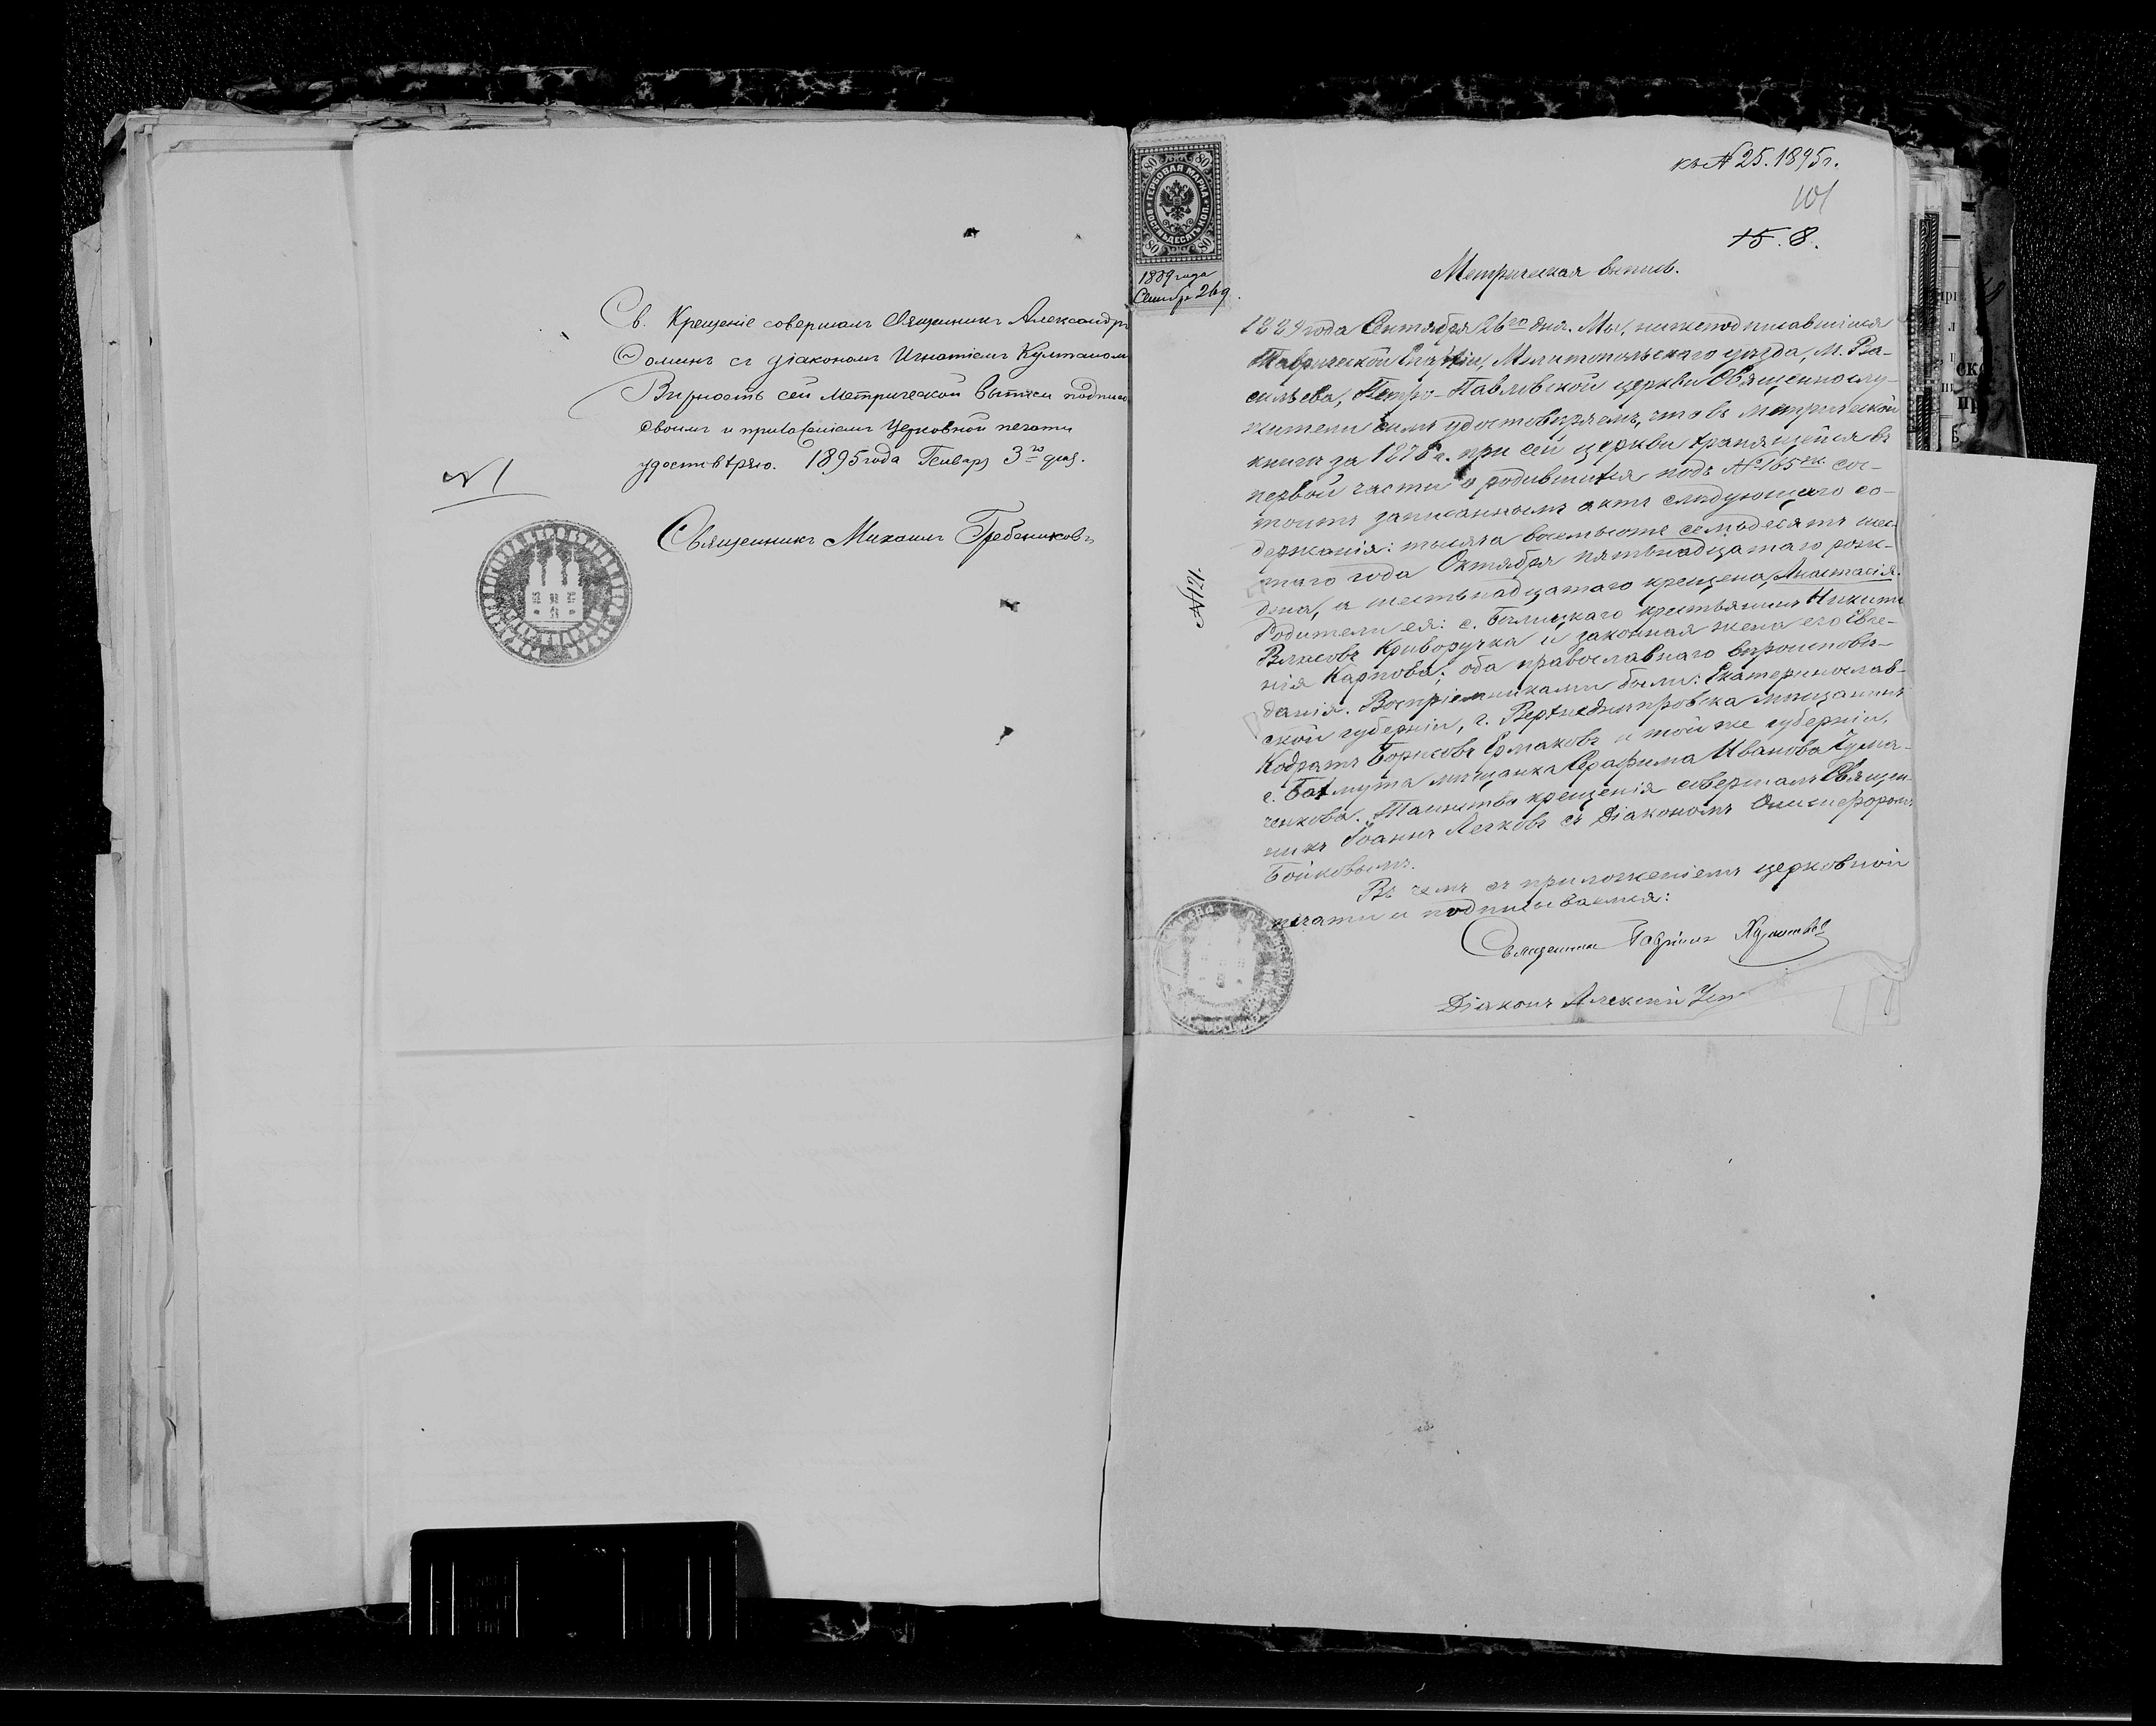 Св. Крещеніе совершалъ Священникъ Александръ
Ѳоминъ съ діакономъ Игнатіемъ
Вѣрность сей Метрической Выписи подписью
своимъ и приложеніемъ Церковной печати
удостовѣряю. 1895 года Генваря 3го дня.
№ 1
Священникъ Михаилъ Гребениковъ
80 80
ГЕРБОВАЯ МАРКА
ВОСЕМЬДЕСЯТЪ КОП.
80 80
1889 года
Сентябр 26 д.
къ № 25. 1895 г.
101
15. 8.
Метрическая выпись.
1889 года Сентября 26го дня. Мы, нижеподписавшіеся
Таврической Епархіи, Мелитопольскаго уѣзда, М. Ва-
сильева, Петро-Павловской церкви Священнослу-
жители симъ удостовѣряемъ, что въ Метрической
книгѣ за 1876 г. при сей церкви хранящейся въ
первой части о родившихся подъ № 165 мъ сос-
тоитъ записаннымъ актъ слѣдующаго со-
держанія: тысяча восемьсотъ семьдесятъ шес-
таго года Октября пятьнадцатаго рож-
дена, а шестьнадцатаго крещена, Анастасія.
Родители ея: с. Бѣлицкаго крестьянинъ Никита
Власовъ Криворучка и законная жена его Евге-
нія Карпова; оба православнаго вѣроисповѣ-
данія. Воспріемниками были: Екатеринослав-
ской губерніи, г. Верхнеднѣпровска мѣщанинъ
Кодратъ Борисовъ Ермаковъ и той же губерніи,
г. Бахмута мѣщанка Серафима Иванова Чума-
ченкова. Таинство крещенія совершалъ Священ-
никъ Іоаннъ Лечковъ съ Діакономъ Онисифоромъ
Бойковымъ.
Въ чемъ съ приложеніемъ церковной
печати и подписываемся:
№ 121.
Священникъ Гавріилъ
Діаконъ Алексій